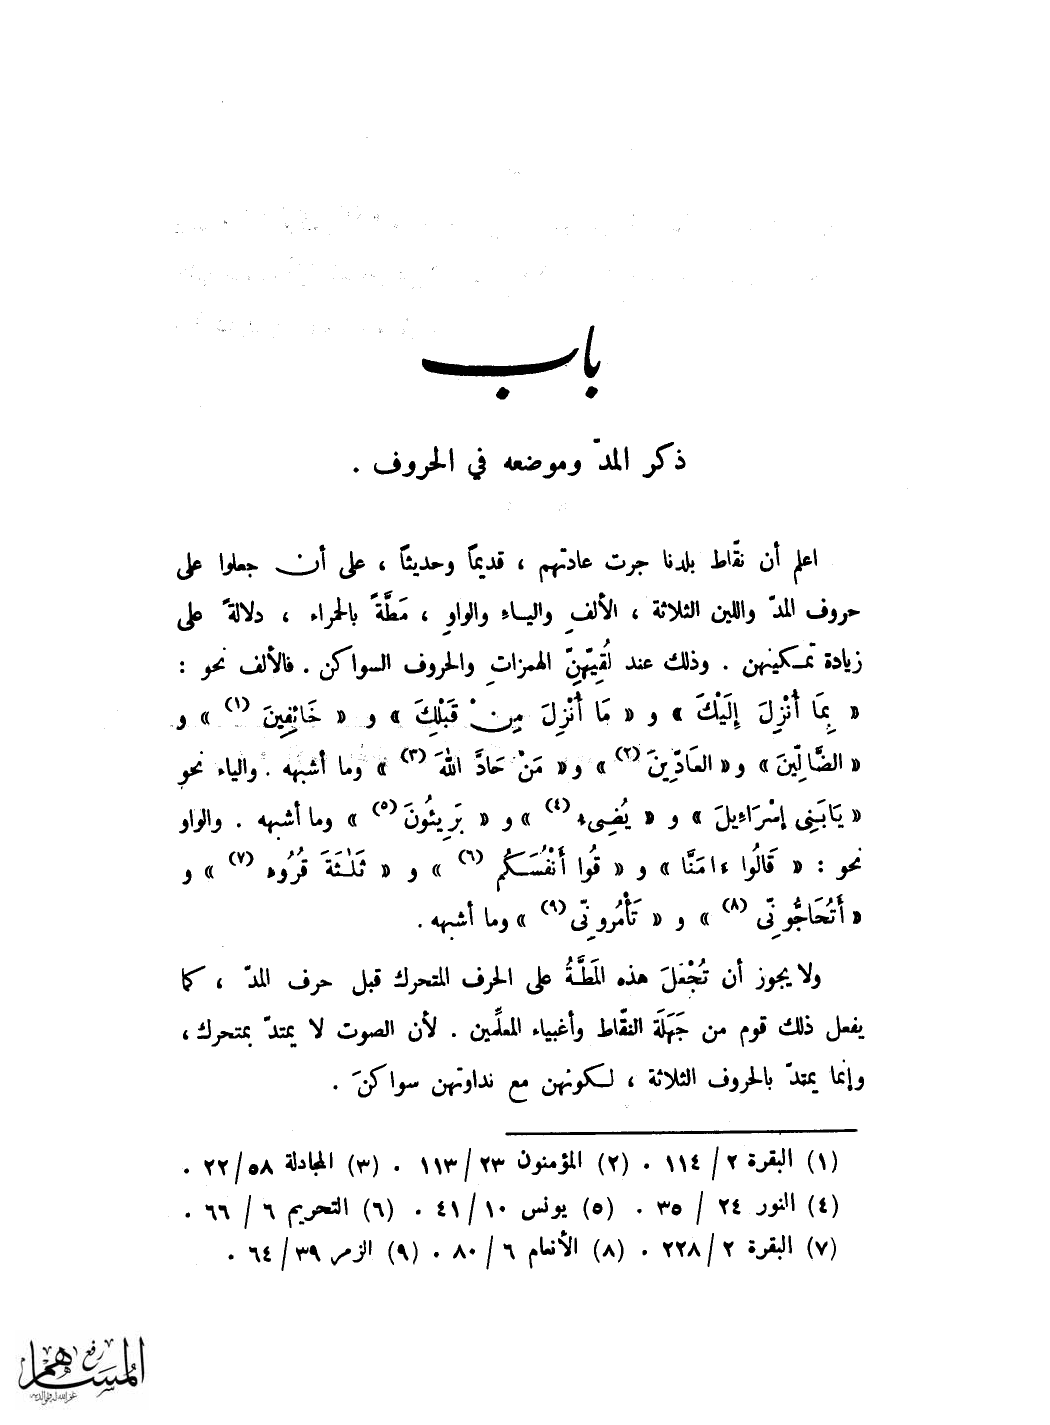 باب
ذكر المدّ وموضعه في الحروف .
اعلم أن نقّاط بلدنا جرت عادتهم ، قديمًا وحديثًا ، على أن جعلوا على
حروف المدّ واللين الثلاثة ، الألفِ والياءِ والواوِ ، مَطَّةً بالحمراء ، دلالةً على
زيادة تمكينهن . وذلك عند لُقِيِّهنّ الهمزاتِ والحروف السواكن . فالألف نحو :
« بِمَا أُنْزِلَ إِلَيْكَ » و « مَا أُنْزِلَ مِنْ قَبْلِكَ » و « خَائِفِينَ (١) » و
« الضَّالِّينَ » و « العَادِّينَ (٢) » و « مَنْ حَادَّ اللهَ (٣) » وما أشبهه . والياء نحو
« يَابَنِى إسْرَاءِيلَ » و « يُضِىء (٤) » و « بَرِيئُونَ (٥) » وما أشبهه . والواو
نحو : « قَالُوا ءامَنَّا » و « قُوا أَنْفُسَكُم (٦) » و « ثَلَـٰثَةَ قُرُوء (٧) » و
« أَتُحَاجُّونِّى (٨) » و « تَأْمُرونِّى (٩) » وما أشبهه .
ولا يجوز أن تُجْعَلَ هذه المَطَّةُ على الحرف المتحرك قبل حرف المدّ ، كما
يفعل ذلك قوم من جَهَلَة النقّاط وأغبياء المعلِّمين . لأن الصوت لا يمتدّ بمتحرك ،
وإنما يمتدّ بالحروف الثلاثة ، لكونهن مع نداوتهن سواكنَ .
(١) البقرة ٢ / ١١٤ . (٢) المؤمنون ٢٣ / ١١٣ . (٣) المجادلة ٥٨ / ٢٢ .
(٤) النور ٢٤ / ٣٥ . (٥) يونس ١٠ / ٤١ . (٦) التحريم ٦ / ٦٦ .
(٧) البقرة ٢ / ٢٢٨ . (٨) الأنعام ٦ / ٨٠ . (٩) الزمر ٣٩ / ٦٤ .
رفع
المساهم